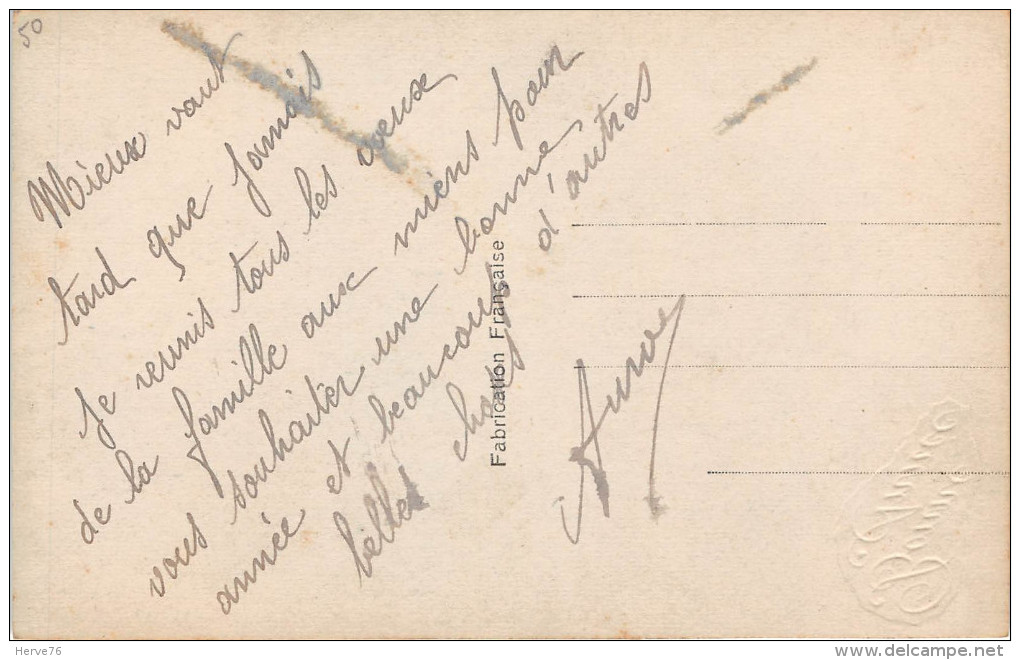 50
Mieux vaut
tard que jamais
Je reunis tous les voeux
de la famille aux miens pour
vous souhaiter une bonne
année et beaucoup d'autres
belles choses
Fabrication Française
Bonne Année
Herve76
www.delcampe.net